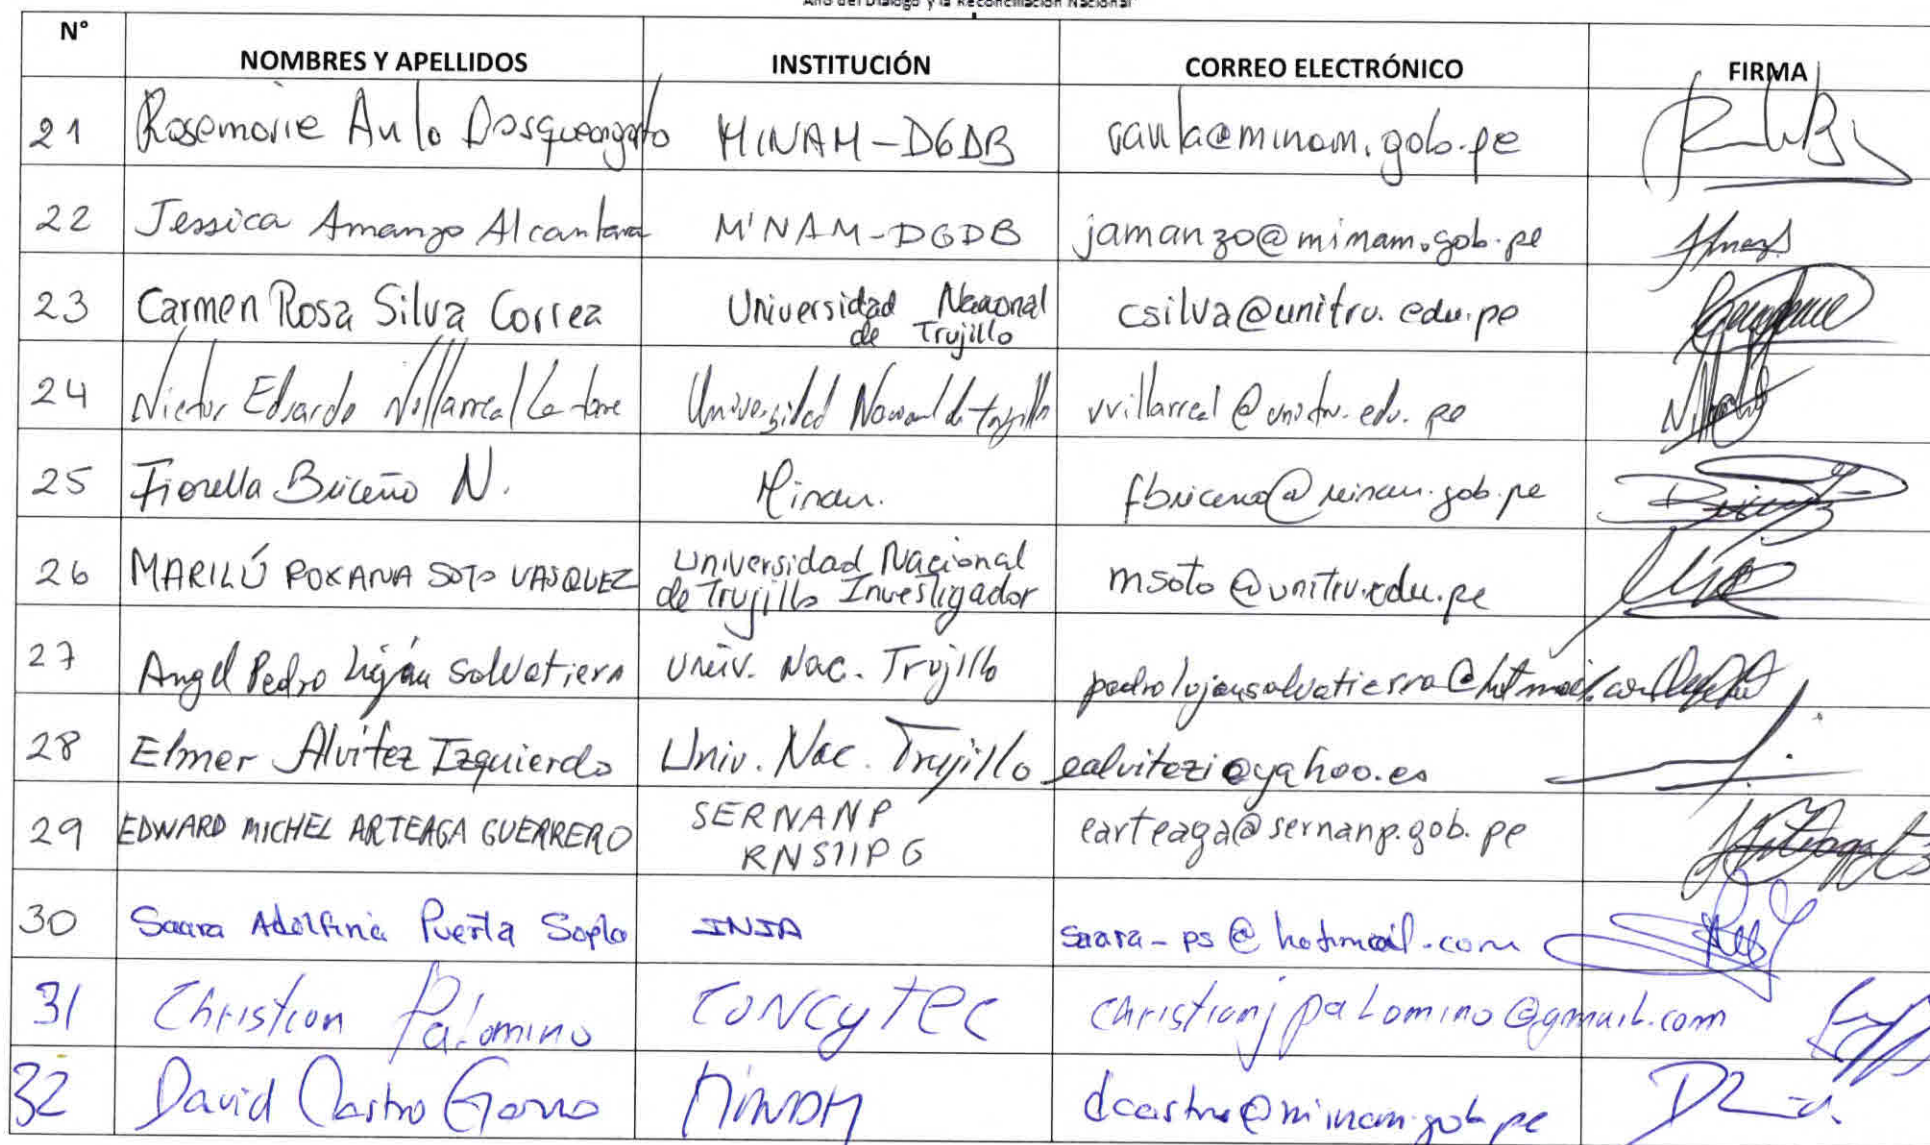 Año del Diálogo y la Reconciliación Nacional
N° NOMBRES Y APELLIDOS INSTITUCIÓN CORREO ELECTRÓNICO FIRMA
21 Rosemarie Aula MINAM-DGDB raula@minam.gob.pe
22 Jessica Amanzo Alcantara MINAM-DGDB jamanzo@minam.gob.pe
23 Carmen Rosa Silva Correa Universidad Nacional de Trujillo csilva@unitru.edu.pe
24 Victor Eduardo Villarreal La torre Universidad Nacional de Trujillo vvillarreal@unitru.edu.pe
25 Fiorella Briceño N. Minam. fbriceno@minam.gob.pe
26 MARILÚ ROXANA SOTO VASQUEZ Universidad Nacional de Trujillo Investigador msoto@unitru.edu.pe
27 Angel Pedro Luján Salvatierra Univ. Nac. Trujillo pedrolujansalvatierra@hotmail.com
28 Elmer Alvitez Izquierdo Univ. Nac. Trujillo ealvitezi@yahoo.es
29 EDWARD MICHEL ARTEAGA GUERRERO SERNANP RNSIIPG earteaga@sernanp.gob.pe
30 Saara Adolfina Puerta Soplo INIA saara-ps@hotmail.com
31 Christian Palomino CONCYTEC christianjpalomino@gmail.com
32 David Castro Garro MINAM dcastro@minam.gob.pe